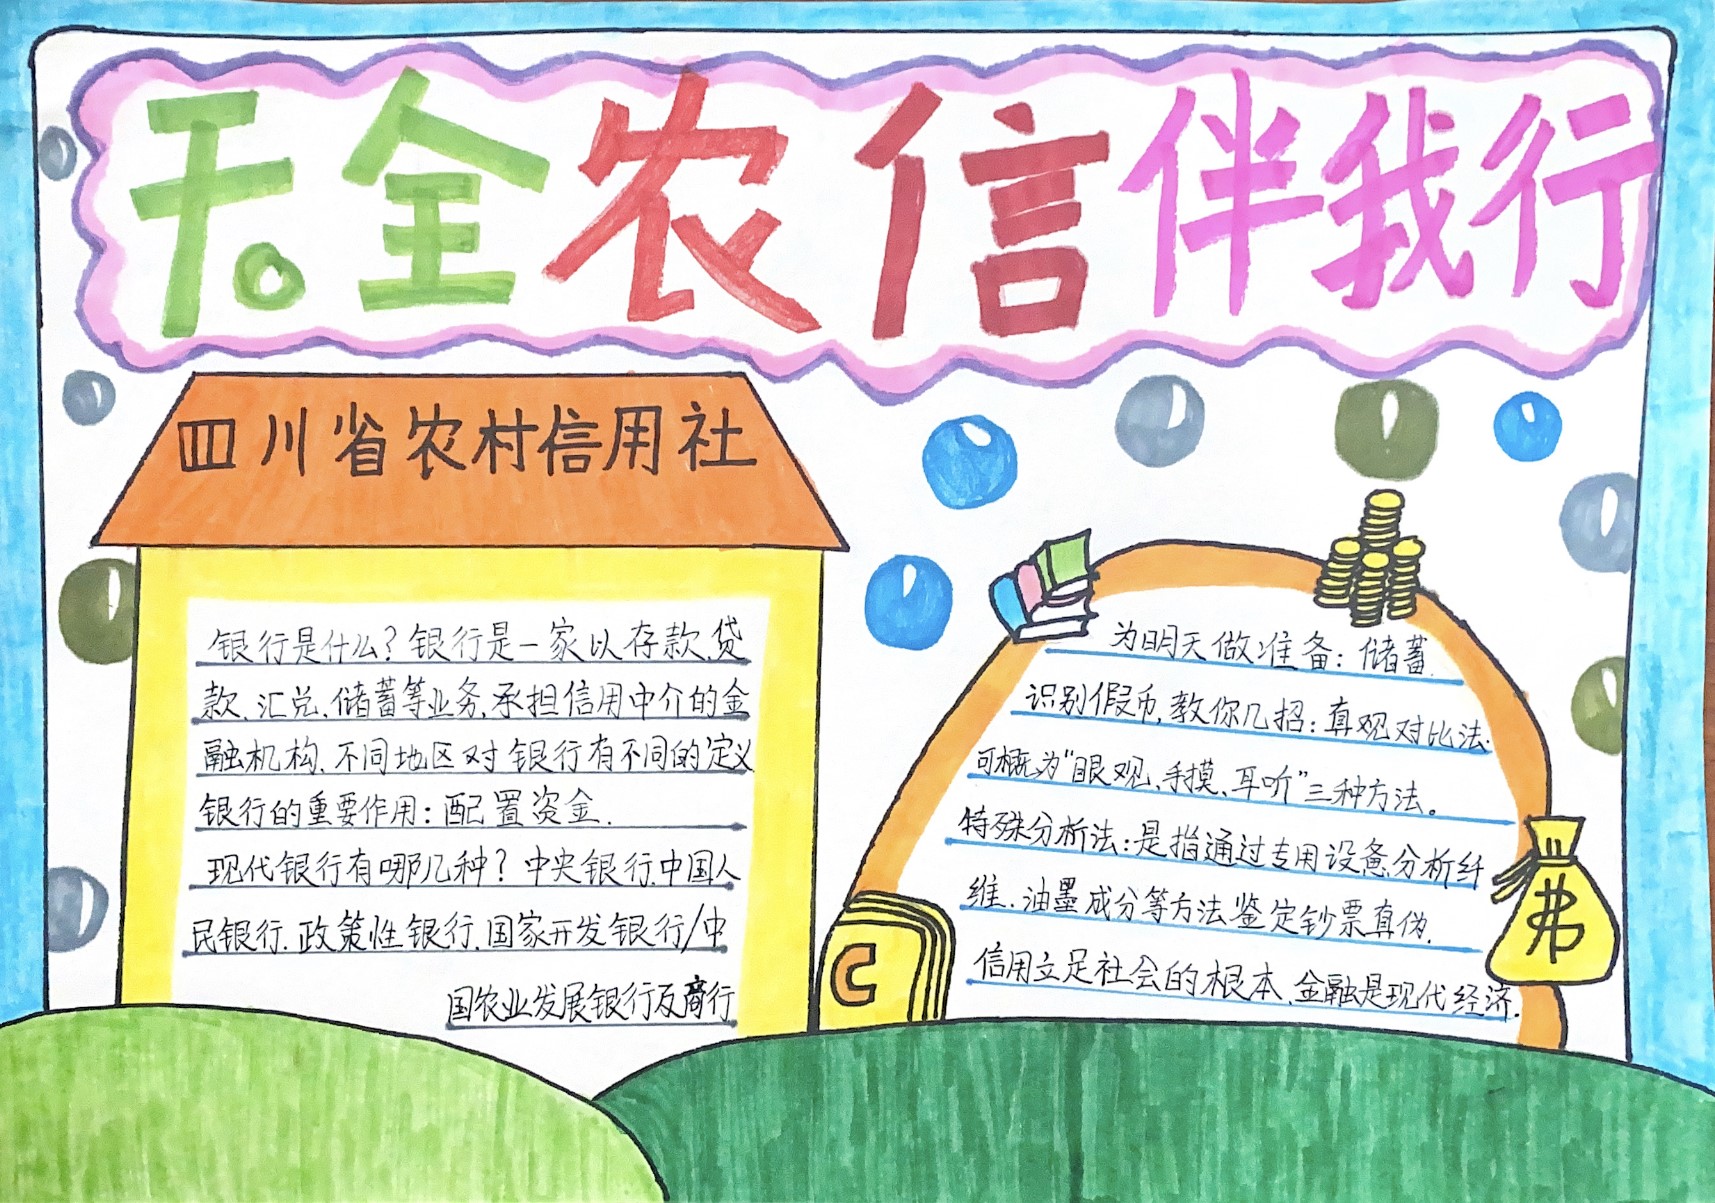 天全农信伴我行
四川省农村信用社
银行是什么?银行是一家以存款、贷
款、汇兑、储蓄等业务、承担信用中介的金
融机构、不同地区对银行有不同的定义
银行的重要作用:配置资金.
现代银行有哪几种?中央银行、中国人
民银行、政策性银行、国家开发银行/中
国农业发展银行及商行
为明天做准备:储蓄
识别假币,教你几招:真观对比法.
可概为"眼观、手摸、耳听"三种方法。
特殊分析法:是指通过专用设惫分析纤
维、油墨成分等方法鉴定钞票真伪.
信用立足社会的根本、金融是现代经济.
C